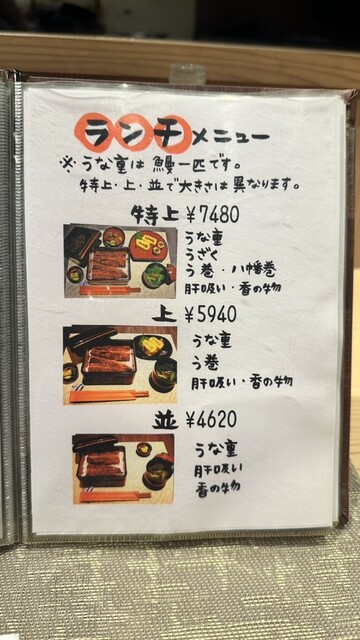 ランチメニュー
※うな重は鰻一匹です。
特上・上・並で大きさは異なります。
特上 ¥7480
うな重
うざく
う巻・八幡巻
肝吸い・香の物
上 ¥5940
うな重
う巻
肝吸い・香の物
並 ¥4620
うな重
肝吸い
香の物